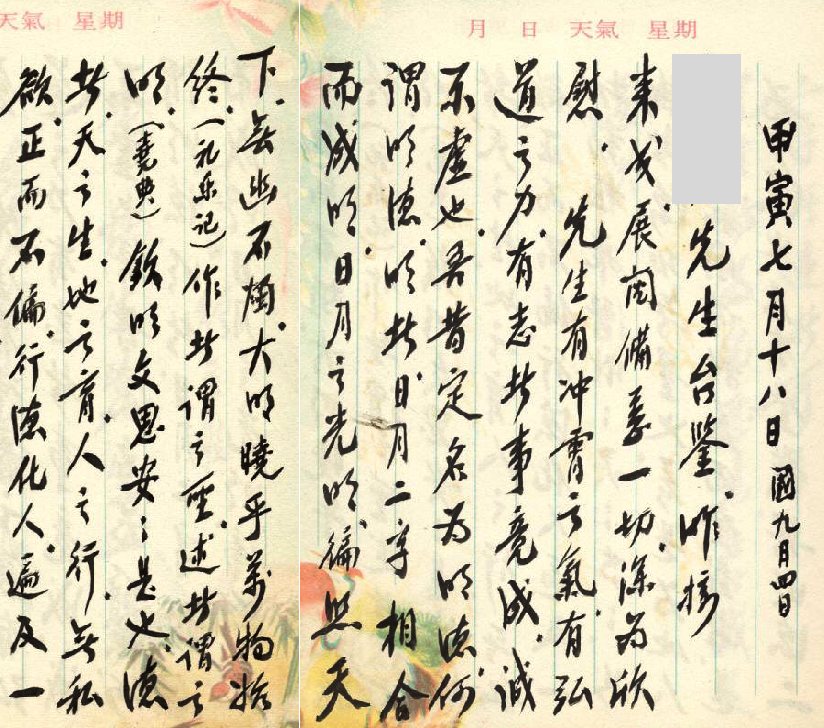 月 日 天氣 星期
天氣 星期
甲寅七月十八日 國九月四日
先生台鑒。昨接
来 展閱備悉一切。深為欣
慰。先生有冲霄之氣。有弘
道之力。有志者事竟成。誠
不虛也。吾昔定名為明德。何
謂明德。明者日月二字相合
而成明。日月之光明。徧照天
下。無幽不燭。大明曉乎萬物始
終。（礼乐记）作者謂之聖。述者謂之
明。（堯典）欽明文思安〻是也。德
者。天之生。地之育。人之行。無私
欲。正而不偏。行德化人。遍及一